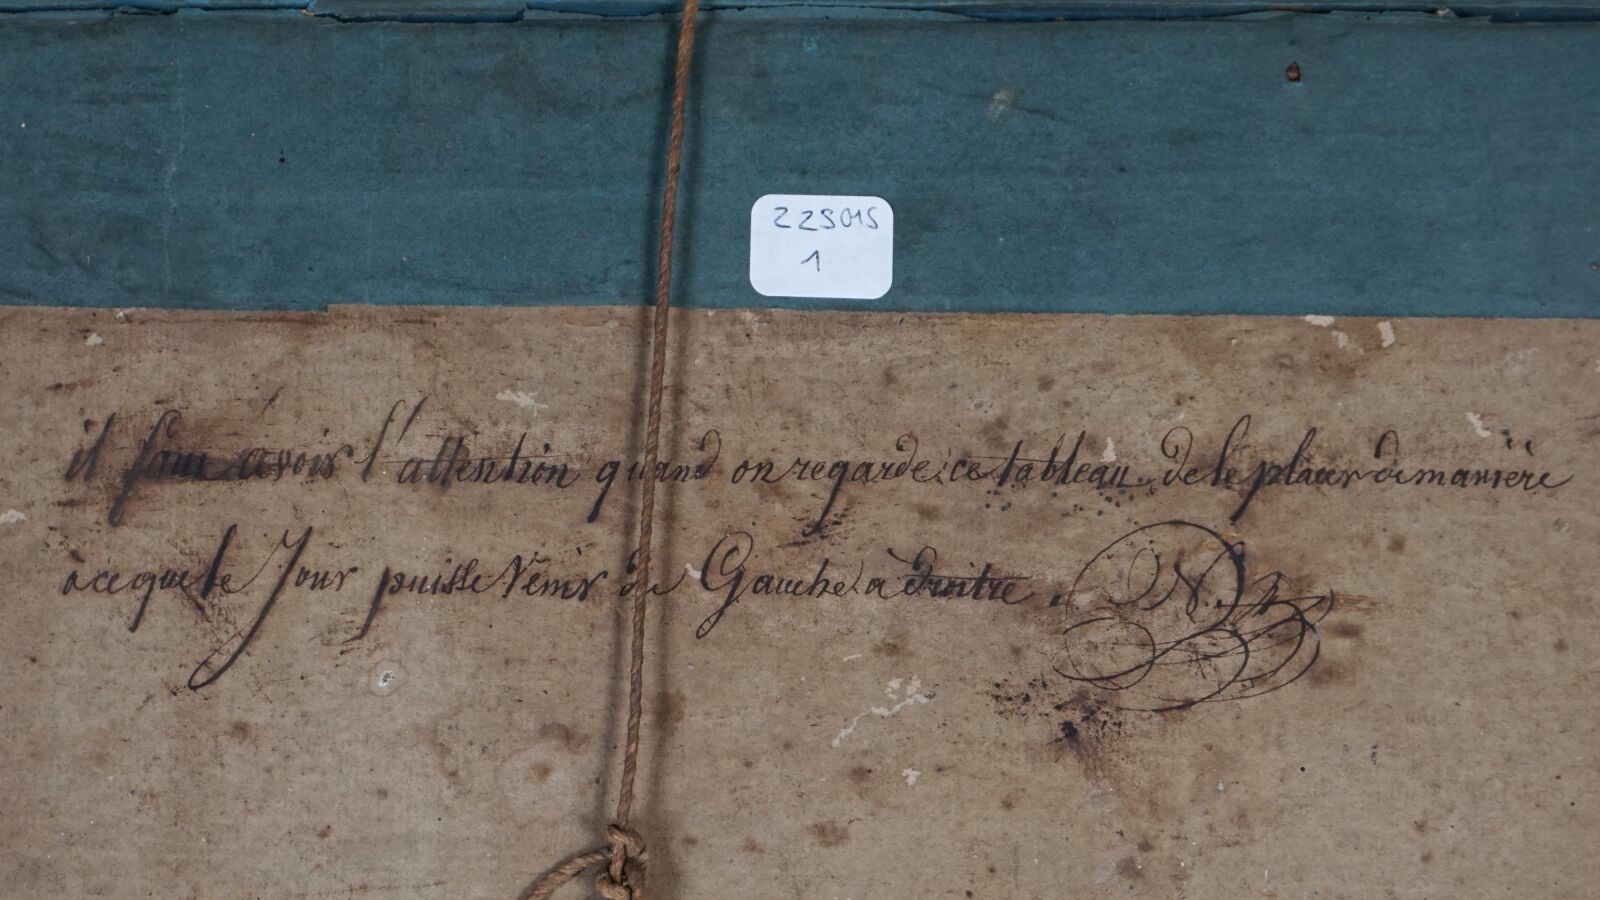 223015
1
il faut avoir l'attention quand on regarde ce tableau de le placer de manière
à ce que le Jour puisse venir de Gauche à droitre. N.